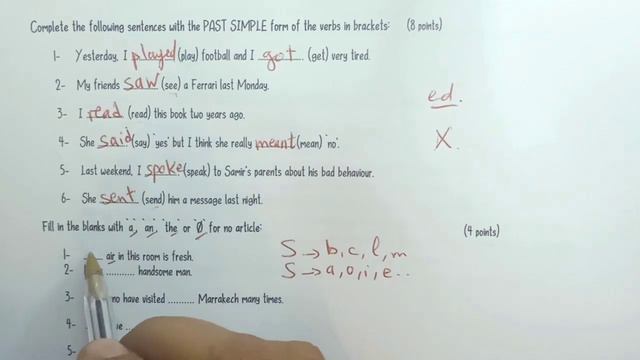 Complete the following sentences with the PAST SIMPLE form of the verbs in brackets: (8 points)
1- Yesterday, I played (play) football and I got (get) very tired.
2- My friends saw (see) a Ferrari last Monday.
3- I read (read) this book two years ago.
4- She said (say) 'yes' but I think she really meant (mean) 'no'.
5- Last weekend, I spoke (speak) to Samir's parents about his bad behaviour.
6- She sent (send) him a message last night.
ed.
X.
Fill in the blanks with 'a', 'an', 'the' or 'Ø' for no article: (4 points)
1- ____ air in this room is fresh.
2- ........... handsome man.
3- no have visited .......... Marrakech many times.
4-
5-
S → b, c, l, m
S → a, o, i, e...